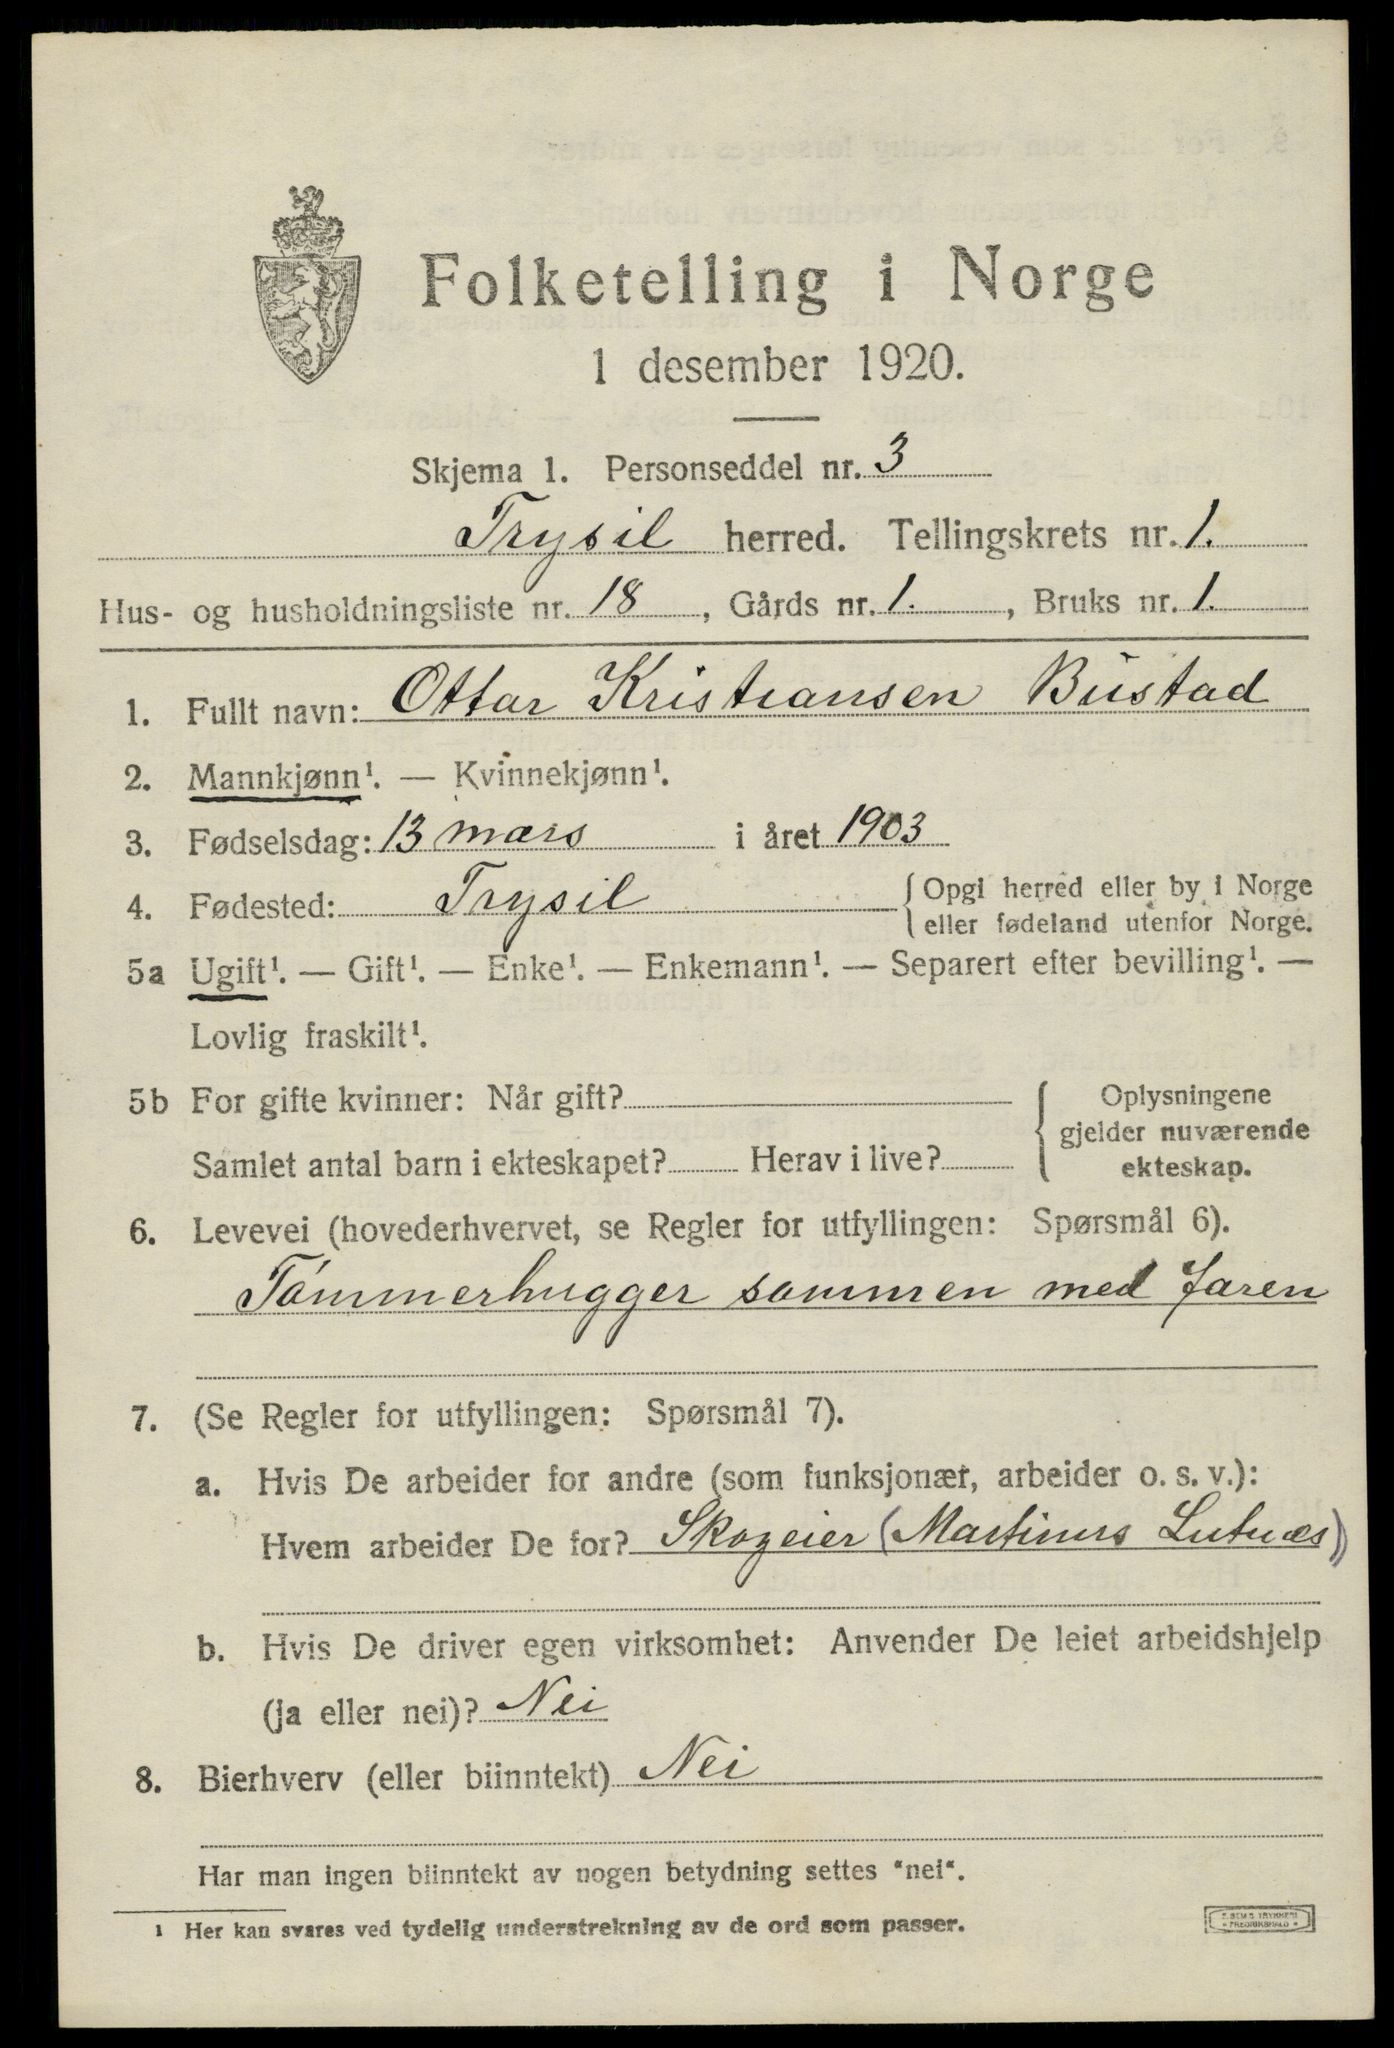 Folketelling i Norge
1 desember 1920.
Skjema 1. Personseddel nr. 3
Trysil herred. Tellingskrets nr. 1.
Hus- og husholdningsliste nr. 18, Gårds nr. 1., Bruks nr. 1.
1. Fullt navn: Ottar Kristiansen Bustad
2. Mannkjønn¹. — Kvinnekjønn¹.
3. Fødselsdag: 13 mars i året 1903
4. Fødested: Trysil { Opgi herred eller by i Norge
eller fødeland utenfor Norge.
5a Ugift¹. — Gift¹. — Enke¹. — Enkemann¹. — Separert efter bevilling¹. —
Lovlig fraskilt¹.
5b For gifte kvinner: Når gift? { Oplysningene
gjelder nuværende
Samlet antal barn i ekteskapet? Herav i live? ekteskap.
6. Levevei (hovederhvervet, se Regler for utfyllingen: Spørsmål 6).
Tømmerhugger sammen med faren
7. (Se Regler for utfyllingen: Spørsmål 7).
a. Hvis De arbeider for andre (som funksjonær, arbeider o. s. v.):
Hvem arbeider De for? Skogeier (Martinus Lutnæs)
b. Hvis De driver egen virksomhet: Anvender De leiet arbeidshjelp
(ja eller nei)? Nei
8. Bierhverv (eller biinntekt) Nei
Har man ingen biinntekt av nogen betydning settes "nei".
1 Her kan svares ved tydelig understrekning av de ord som passer.
E. SEM S TRYKKERI
* FREDRIKSHALD *